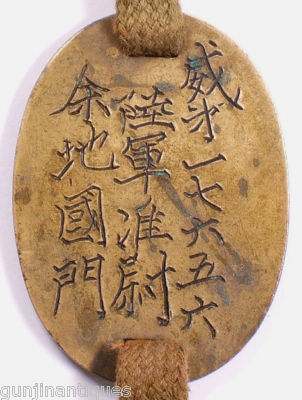 威才一七六五六
陸軍准尉
余地國門
gunjinantiques